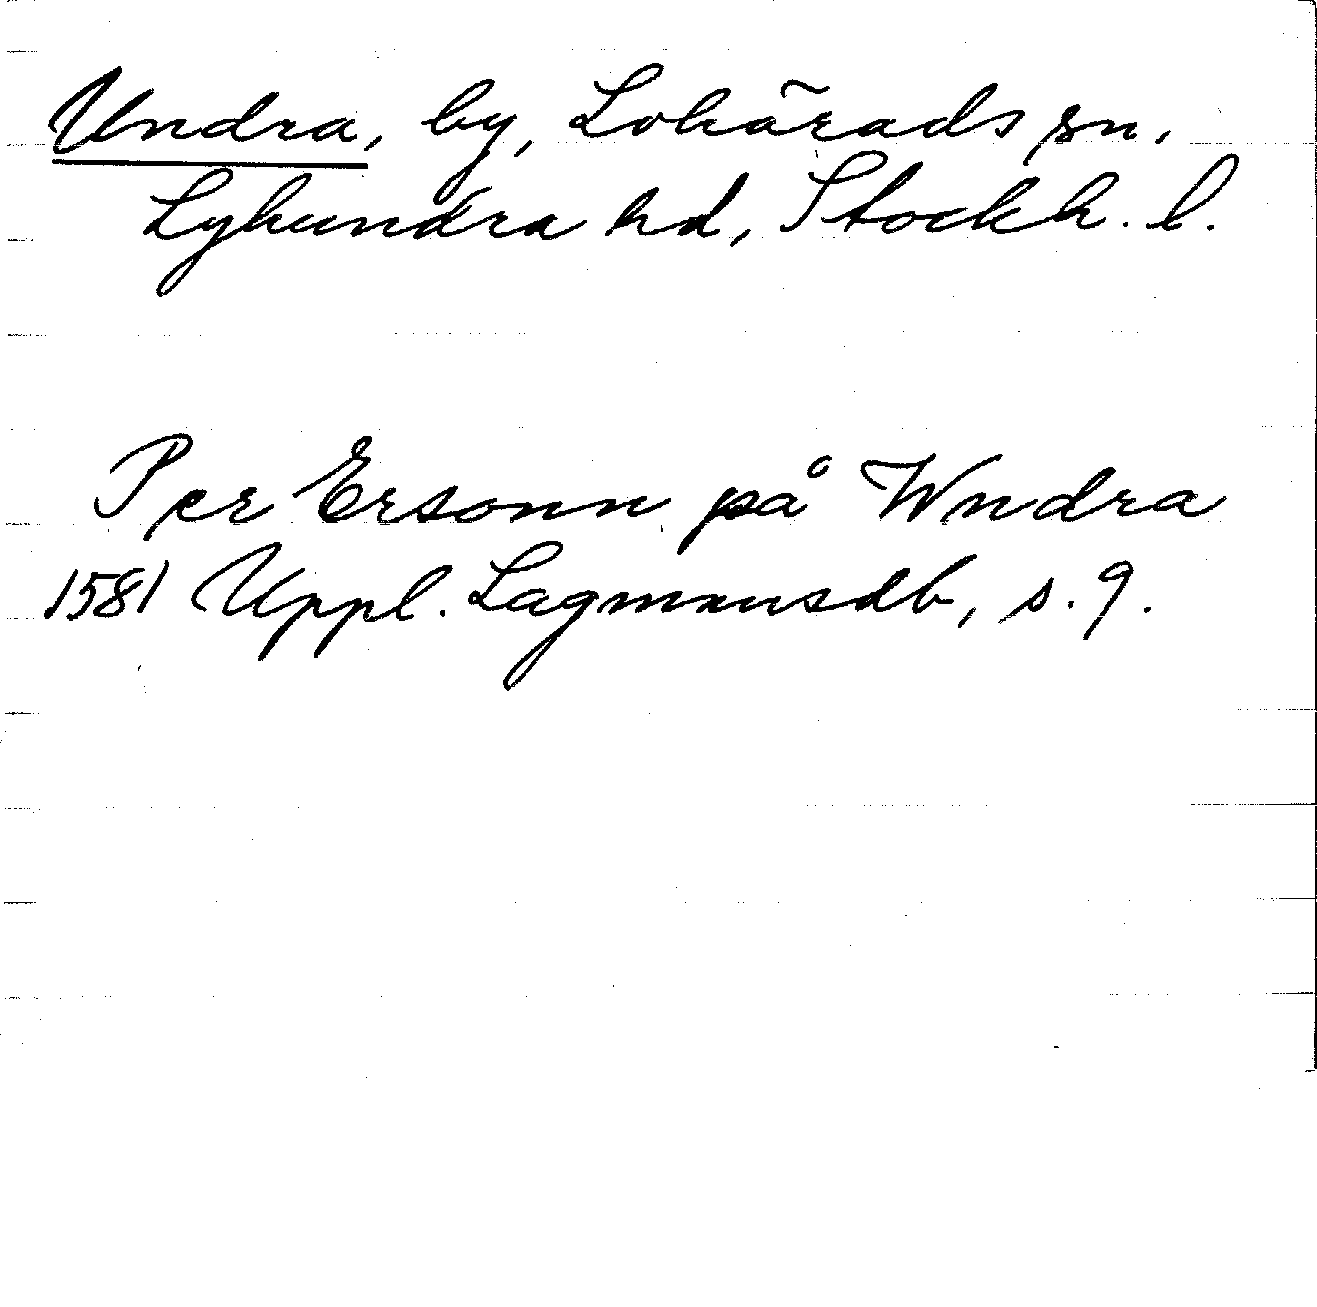 Undra, by, Lohärads sn.
Lyhundra hd, Stockh. l.
Per Ersonn på Wndra
1581 Uppl. Lagmansdb, s. 9.